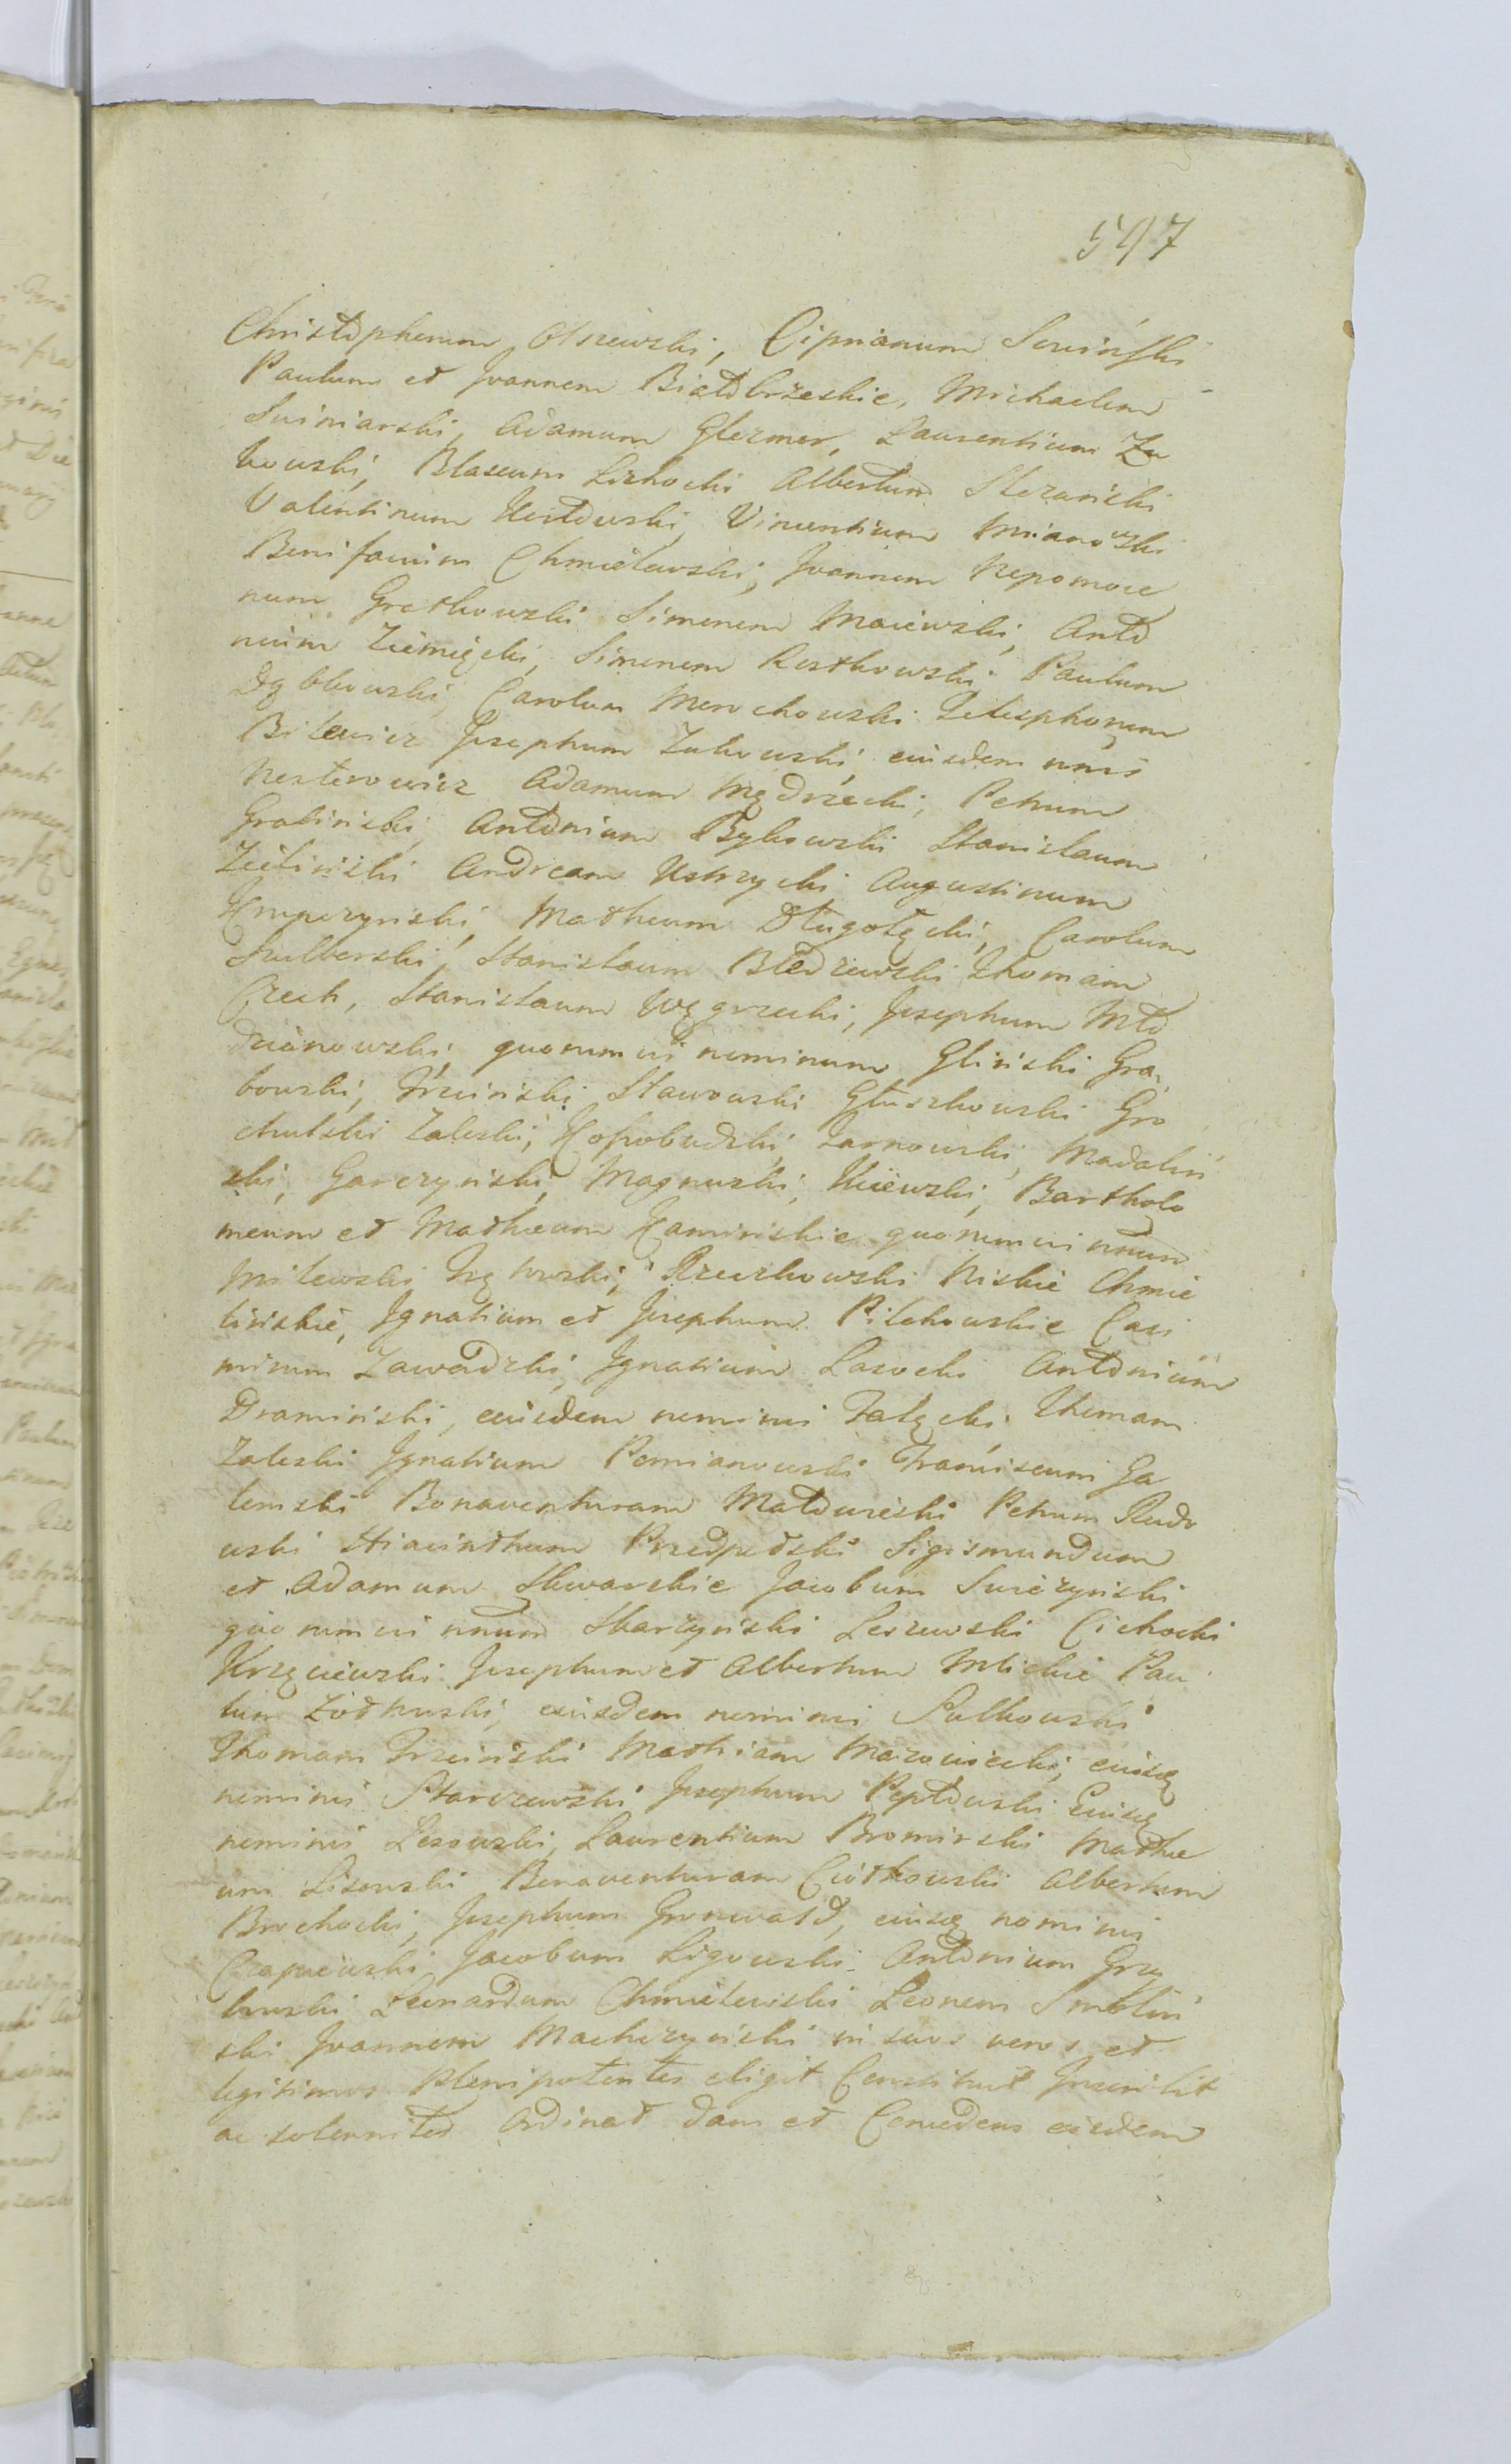 547
Christophorum Olszewski, Ciprianum Sowiński
Paulum et Joannem Białobrzeskie, Michaelem
Swiniarski, Adamum Glezmer, Laurentium Zu
kowski, Blaseum Lichocki Albertum
Valentinum Kozłowski, Vincentium Mianowski
Bonifacium Chmielewski, Joannem Nepomoce
num Gretkowski Simonem Maiewski, Anto
nium Ziemięcki, Simonem Rostkowski Paulum
Dąbkowski, Carolum Morochowski Telesphorum
Bilewicz Josephum Zukowski, eiusdem nnis
Nesterowicz Adamum Mędrzecki, Petrum
Graliński, Antonium Bykowski Stanislaum
Zieliński Andream Ustrzycki Augustinum
Kempczyński, Matheum Długołęcki, Carolum
Szulborski, Stanislaum Bledzewski Thomam
Czech, Stanislaum Węgrzecki, Josephum Mło
dzianowski quorumvis nominum Gliński Gra
bowski, Trzciński Sławoski Głuszkowski Gro
chulski Zaleski, Kossobudzki, Zarnowski, Madaliń
ski, Garczyński, Magnuski, Kiiewski, Bartholo
meum et Matheum Kamińskie quorumvis nnum
Milewski Rzeszkowski Niskie Chmie
lińskie, Ignatium et Josephum Pilchowskie Casi
mirum Zawadzki, Ignatium Lasocki Antonium
Dramiński, eiusdem nominis Załęcki Thomam
Zaleski Ignatium Pomianowski Franciscum Ga
lemski Bonaventuram Matowieski Petrum Rudo
wski Hiacinthum Przedpełski Sigismundum
et Adamum Skwarskie Jacobum Swieżyński
quorumvis nnum Skarzyński Leszewski Cichocki
Krzęciewski Josephum et Albertum Mlickie Pau
lum Ziołkuski, eiusdem nominis Sułkowski
Thomam Trzciński Mathiam Mazowiecki, eiusq
nominis Starczewski Josephum Peptowski Eiusq
nominis Lesowski, Laurentium Bromirski Mathe
um Lisowski Bonaventuram Ciołkowski Albertum
Brochocki, Josephum Gronwald, eiusq nominis
Czapiewski, Jacobum Ligowski Antonium Grzy
bowski Leonardum Chmielewski Leonem Smoliń
ski Joannem Machczyński in suos veros et
legitimos Plenipotentes eligit Constituit Inscribit
ac solenniter Ordinat dans et Concedens eisdem